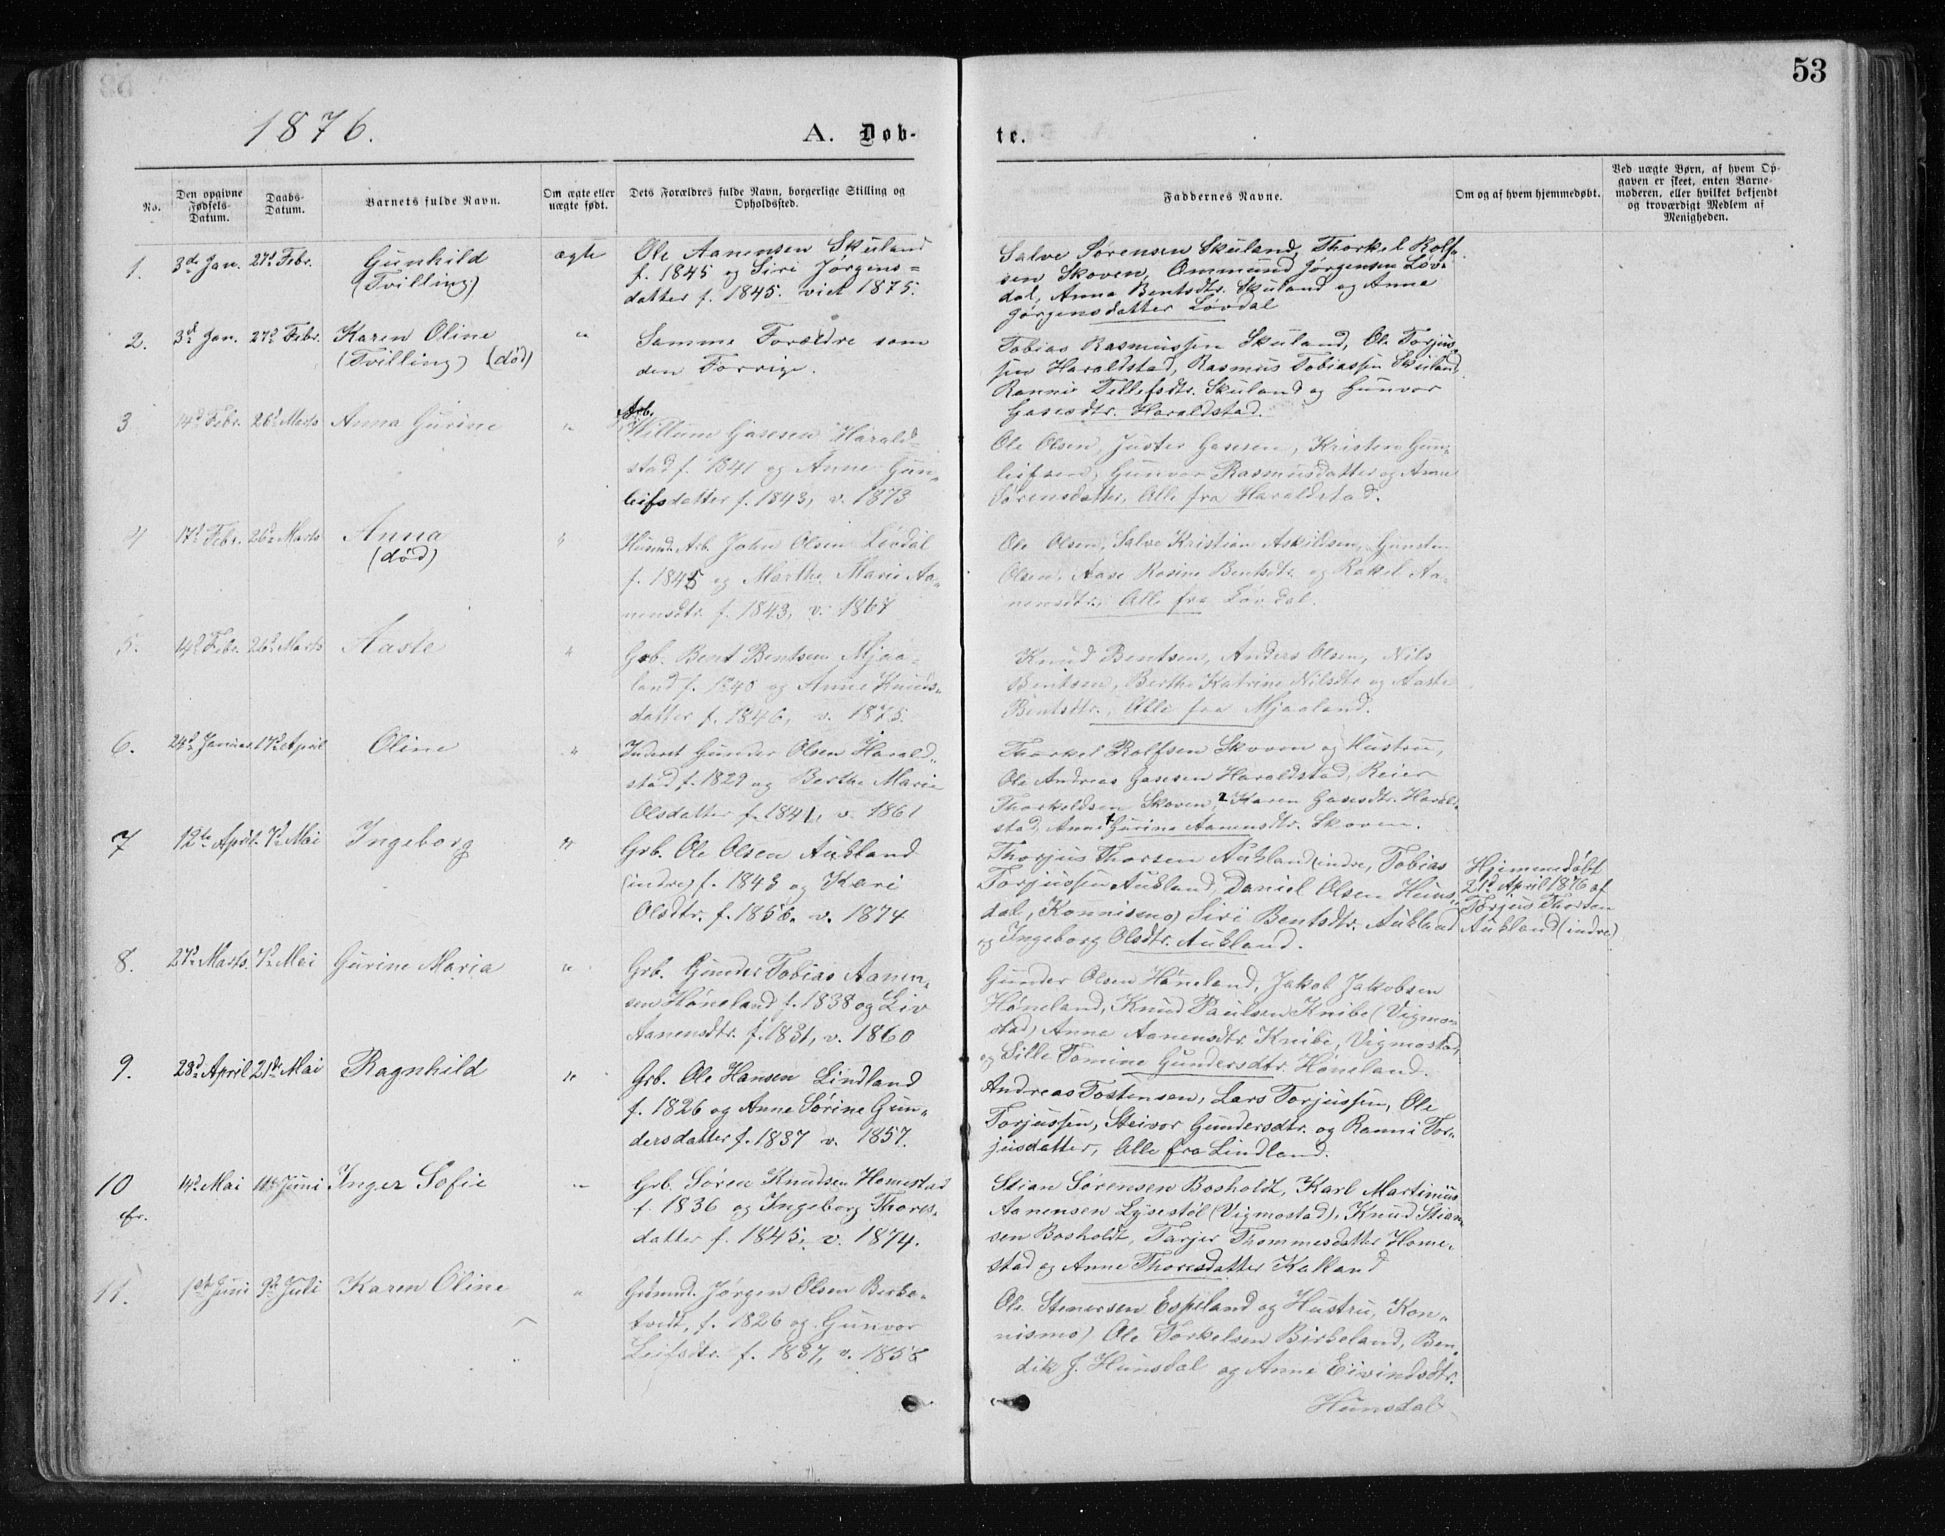 53
1876.
A. Døb-
te.
No.
Den opgivne Fødsels-Datum.
Daabs-Datum.
Barnets fulde Navn.
Om ægte eller uægte født.
Dets Forældres fulde Navn, borgerlige Stilling og Opholdssted.
Faddernes Navne.
Om og af hvem hjemmedøbt.
Ved uægte Børn, af hvem Op-
gaven er skeet, enten Barne-
moderen, eller hvilket bekjendt
og troværdigt Medlem af
Menigheden.
1. 3d Jan. 27d Febr. Gunhild ægte
(Tvilling)
Ole Aanensen Skuland
f. 1845 og Siri Jørgens=
datter f. 1845. viet 1875.
Salve Sørensen Skuland, Thorkel Rolf-
sen Skoven, Ommund Jørgensen Løv-
dal, Anna Bentsdtr. Skuland og Anna
Jørgensdatter Løvdal
2. 3d Jan. 27d Febr. Karen Oline "
(Tvilling) (død)
Samme Forældre som
den Forrige.
Tobias Rasmussen Skuland, Ole Torjus-
sen Haraldstad, Rasmus Tobiassen Skuland
Ranni Tellefsdtr. Skuland og Gunvor
Gasesdtr. Haraldstad.
3 14d Febr. 26d Marts Anna Gurine "
Arb.
Willum Gasesen Harald=
stad f. 1841 og Anne Gun=
leifsdatter f. 1843, v. 1873
Ole Olsen, Juster Gasesen, Kristen Gun-
leifsen, Gunvor Rasmusdatter og Anne
Sørensdatter, Alle fra Haraldstad.
4 17d Febr. 26d Marts Anna "
(død)
Husmd. Arb. John Olsen Løvdal
f. 1845 og Marthe Marie Aa-
nensdtr. f. 1843, v. 1867
Ole Olsen, Salve Kristian Askildsen, Gunsten
Olsen, Aase Rosine Bentsdtr. og Rakel Aa-
nensdtr., Alle fra Løvdal.
5. 14d Febr. 26d Marts Aaste "
Grb. Bent Bentsen Mjaa-
land f. 1840 og Anne Knuds-
datter f. 1846, v. 1875.
Knud Bentsen, Anders Olsen, Nils
Bentsen, Berthe Katrine Nilsdtr og Aaste
Bentsdtr., Alle fra Mjaaland.
6. 24d Januar 17d April Oline "
Inderst Gunder Olsen Harald-
stad f. 1829 og Berthe Marie
Olsdatter f. 1841, v. 1861
Thorkel Rolfsen Skoven og Hustru,
Ole Andreas Gasesen Haraldstad, Reier
Thorkeldsen Skoven, 2 Karen Gasesdtr. Harald-
stad, Anne 1 Gurine Aanensdtr. Skoven.
7 12te April. 7d Mai Ingeborg "
Grb. Ole Olsen Aukland
(indre) f. 1843 og Kari
Olsdtr. f. 1856. v. 1874
Thorjus Thorsen Aukland (indre, Tobias
Torjussen Aukland, Daniel Olsen Huns-
dal, Konnismo) Siri Bentsdtr. Aukland
og Ingeborg Olsdtr. Aukland.
Hjemmedøbt
21d April 1876 af
Torjus Thorsen
Aukland (indre)
8. 27d Marts. 7d Mai Gurine Maria "
Grb. Gunder Tobias Aanen-
sen Høneland f. 1838 og Liv
Aanensdtr. f. 1831, v. 1860
Gunder Olsen Høneland, Jakob Jakobsen
Høneland, Knud Paulsen Knibe (Vigmo-
stad) Anne Aanensdtr. Knibe, Vigmostad,
og Sille Tomine Gundersdtr. Høneland.
9. 28d April 21de Mai Ragnhild "
Grb. Ole Hansen Lindland
f. 1826 og Anne Sørine Gun-
dersdatter f. 1837 v. 1857.
Andreas Tostensen, Lars Torjussen, Ole
Torjussen, Steivor Gundersdtr. og Ranni Tor-
jusdatter, Alle fra Lindland.
10 14d Mai 11te Juni Inger Sofie "
Grb. Søren Knudsen Homestad
f. 1836 og Ingeborg Thores-
datter f. 1845, v. 1874.
Stian Sørensen Bosholdt, Karl Martinius
Aanensen Lysestøl (Vigmostad), Knud Stian-
sen Bosholdt, Tarjer Thommesdatter Home-
stad og Anne Thoresdatter Kalland
11. 1st Juni 9de Juli Karen Oline "
Grbmd. Jørgen Olsen Birke-
tvedt, f. 1826 og Gunvor
Leifsdtr. f. 1837, v. 1858
Ole Stenersen Espeland og Hustru, Kon-
nismo) Ole Torkelsen Birkeland, Ben-
dik J. Hunsdal og Anne Eivindsdtr.
Hunsdal